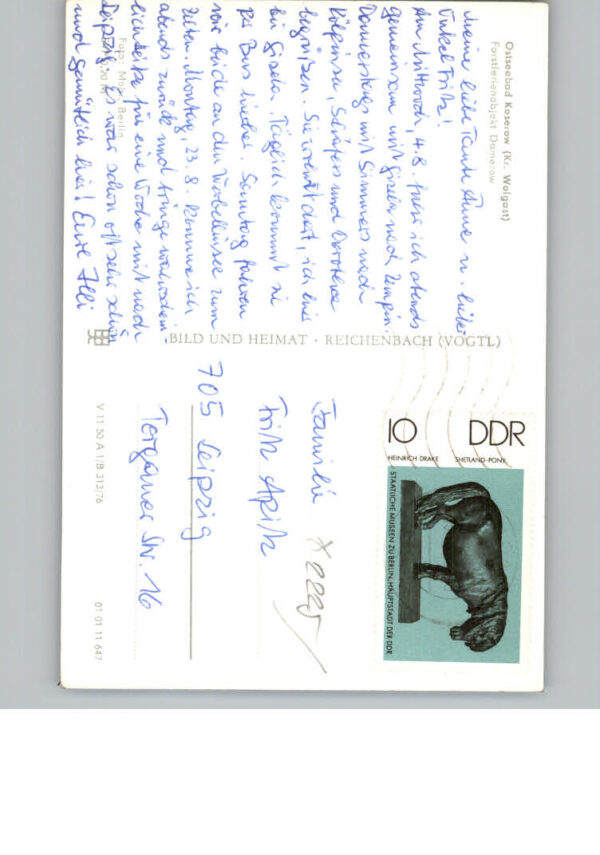 Ostseebad Koserow (Kr. Wolgast)
Forstferienobjekt Damerow
Meine liebe Tante Anne u. lieber
Onkel Fritz!
Am Mittwoch, 4.8. fuhr ich abends
gemeinsam mit Gisela nach Zempin.
Donnerstags mit Simmers nach
Kölpinsee, Schäfers und Dorothea
begrüßen. Sie wohnt dort, ich hier
bei Gisela. Täglich kommt sie
per Bus hierher. Sonntag fahren
wir beide an den Wobelinsee zum
Zelten. Montag, 23.8. komme ich
abends zurück und bringe
für eine Woche mit nach
Leipzig. Es war schon oft sehr schön
und gemütlich hier! Eure Illi
Foto: Mohr, Berlin
BILD UND HEIMAT · REICHENBACH (VOGTL)
V 11 50 A 1/B 313/76
01 01 11 647
10 DDR
HEINRICH DRAKE SHETLAND-PONY
STAATLICHE MUSEEN ZU BERLIN, HAUPTSTADT DER DDR
Familie
Fritz Apitz
705 Leipzig
Torgauer Str. 16